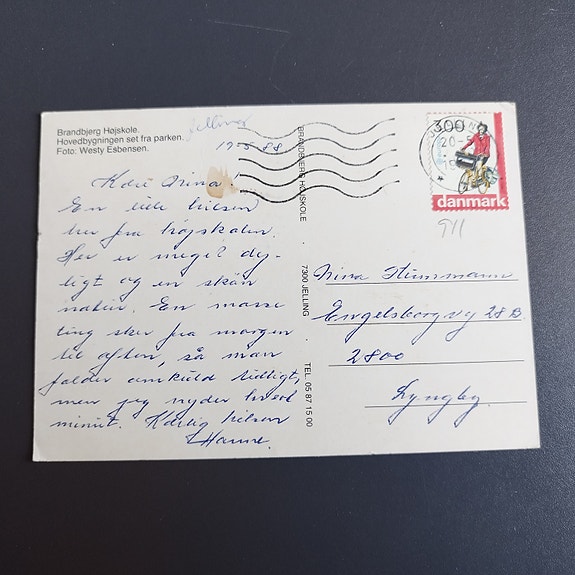 Brandbjerg Højskole.
Hovedbygningen set fra parken.
Foto: Westy Esbensen.
Jelling
19-5-88
Kære Nina
En lille hilsen
her fra højskolen.
Her er meget dej-
ligt og en skøn
natur. En masse
ting sker fra morgen
til aften, så man
falder omkuld tidligt,
men jeg nyder hvert
minut. Kærlig hilsen
Hanne.
BRANDBJERG HØJSKOLE · 7300 JELLING · TEL. 05 87 15 00
300
20-5
danmark
941
Nina
Engelsborgvej 28 B.
2800
Lyngby.